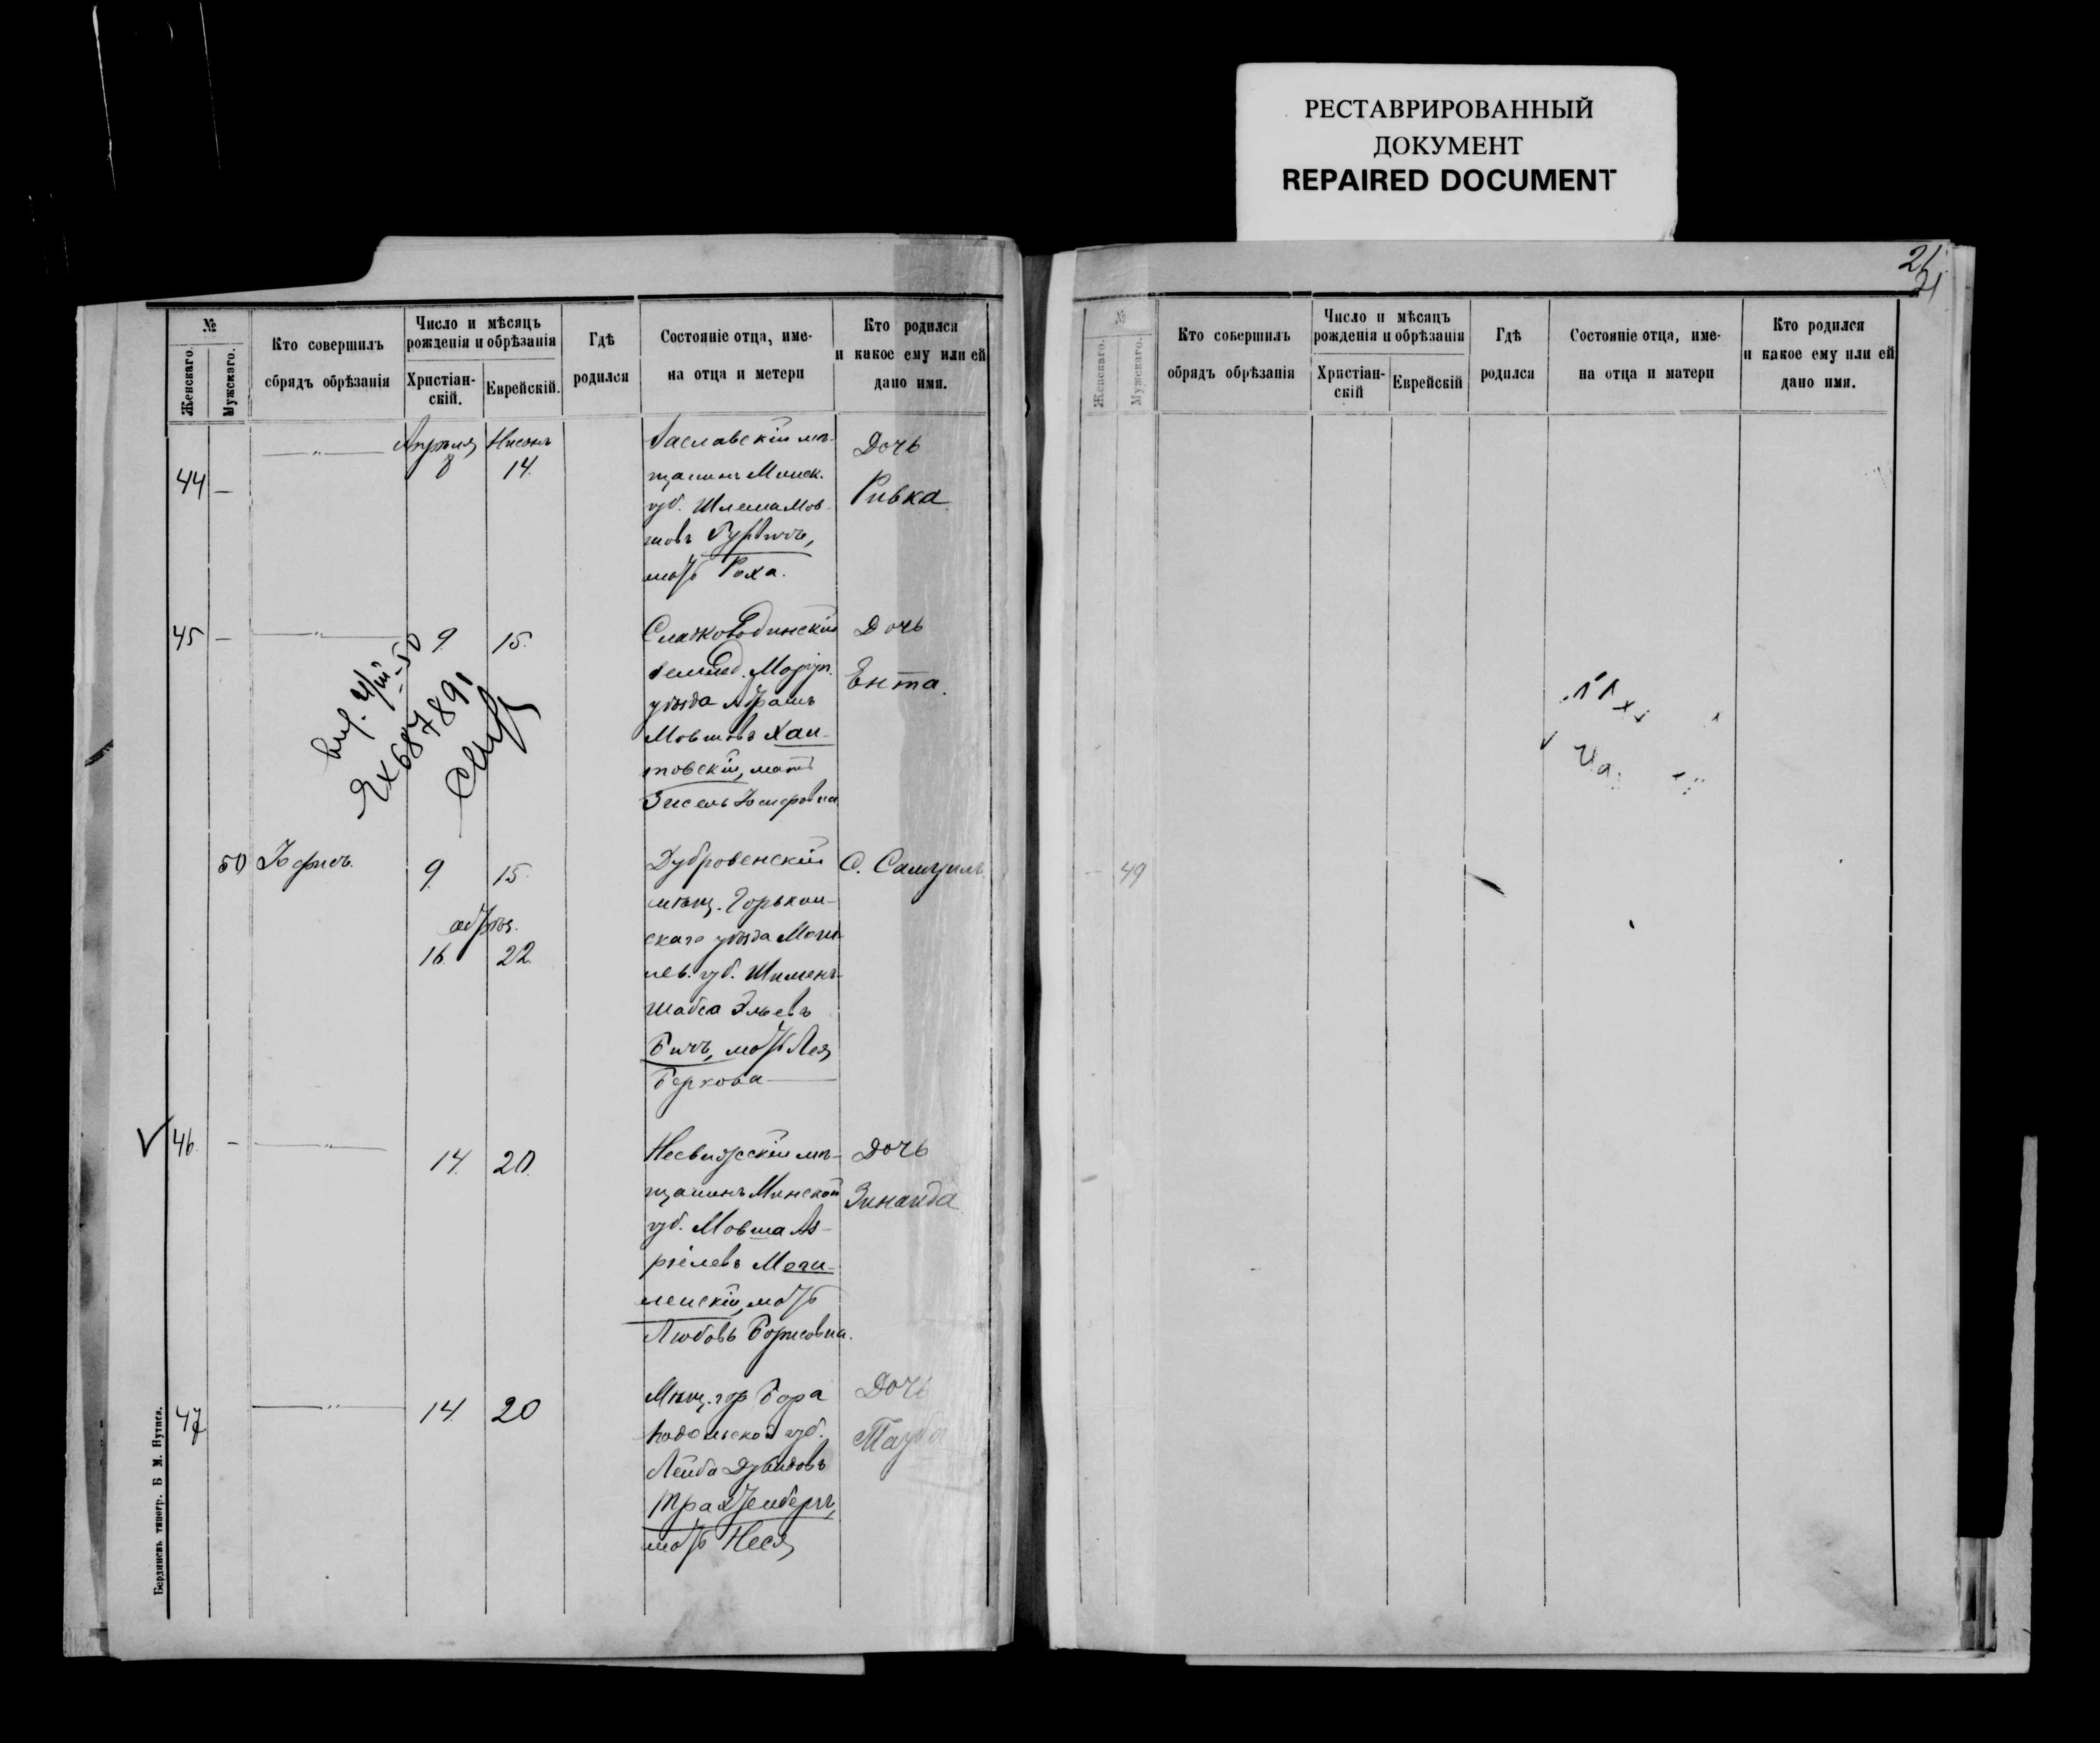 РЕСТАВРИРОВАННЫЙ
ДОКУМЕНТ
REPAIRED DOCUMENT
№
Женскаго.
Мужскаго.
Кто совершилъ
обрядъ обрѣзанія
Число и мѣсяцъ
рожденія и обрѣзанія
Христіан-
скій.
Еврейскій.
Гдѣ
родился
Состояніе отца, име-
на отца и метери
Кто родился
и какое ему или ей
дано имя.
44 —
Апрѣля 8
Нисонъ 14.
Заславскій мѣ-
щанинъ Минск.
губ. Шлема Мов-
шовъ Гурвичъ,
мать Роха.
Дочь
Ривка
45 — 9 15.
Сладководинскій
землед. Маріуп.
уѣзда Абрамъ
Мовшовъ Хан-
товскій, мать
Зисель
Дочь
Ента.
ЯХ 687891
50
9. 15.
обрѣз.
16. 22.
Дубровенскій
мѣщ. Горькан-
скаго уѣзда Моги-
лев. губ. Шименъ-
Шабса Эльевъ
Бичъ, мать Лея
Беркова
С. Самуилъ
46. — 14. 20.
Несвижскій мѣ-
щанинъ Минской
губ. Мовша Аз-
ріелевъ Моги-
ленскій, мать
Любовь Борисовна.
Дочь
Зинаида
47 14. 20
Мѣщ. гор Бара
Подольской губ.
Лейба Дувидовъ
Трахтенбергъ,
мать Неся
Дочь
Тауба
Бердянскъ типогр. Б М. Нутиса.
21.
21
№
Женскаго.
Мужскаго.
Кто совершилъ
обрядъ обрѣзанія
Число и мѣсяцъ
рожденія и обрѣзанія
Христіан-
скій
Еврейскій
Гдѣ
родился
Состояніе отца, име-
на отца и матери
Кто родился
и какое ему или ей
дано имя.
49